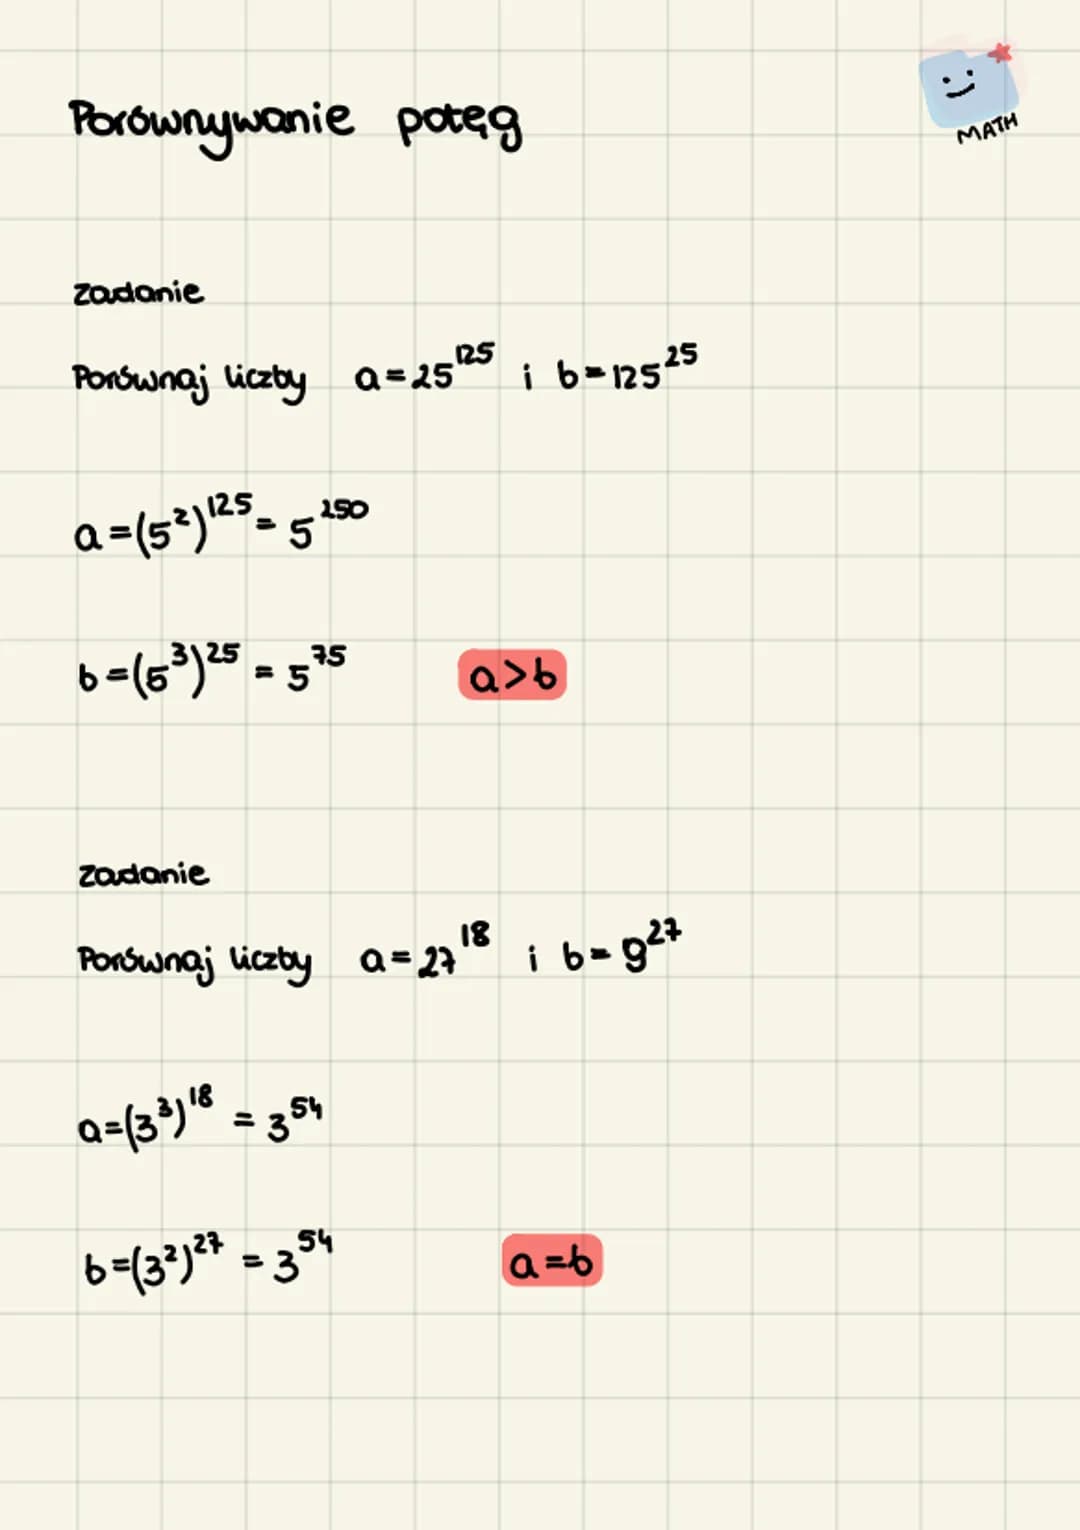 Porównywanie potęg
MATH
zadanie
Porównaj liczby a=25¹²⁵ i b=125²⁵
a=(5²)¹²⁵=5²⁵⁰
b=(5³)²⁵=5⁷⁵ a>b
zadanie
Porównaj liczby a=27¹⁸ i b=9²⁷
a=(3³)¹⁸=3⁵⁴
b=(3²)²⁷=3⁵⁴ a=b